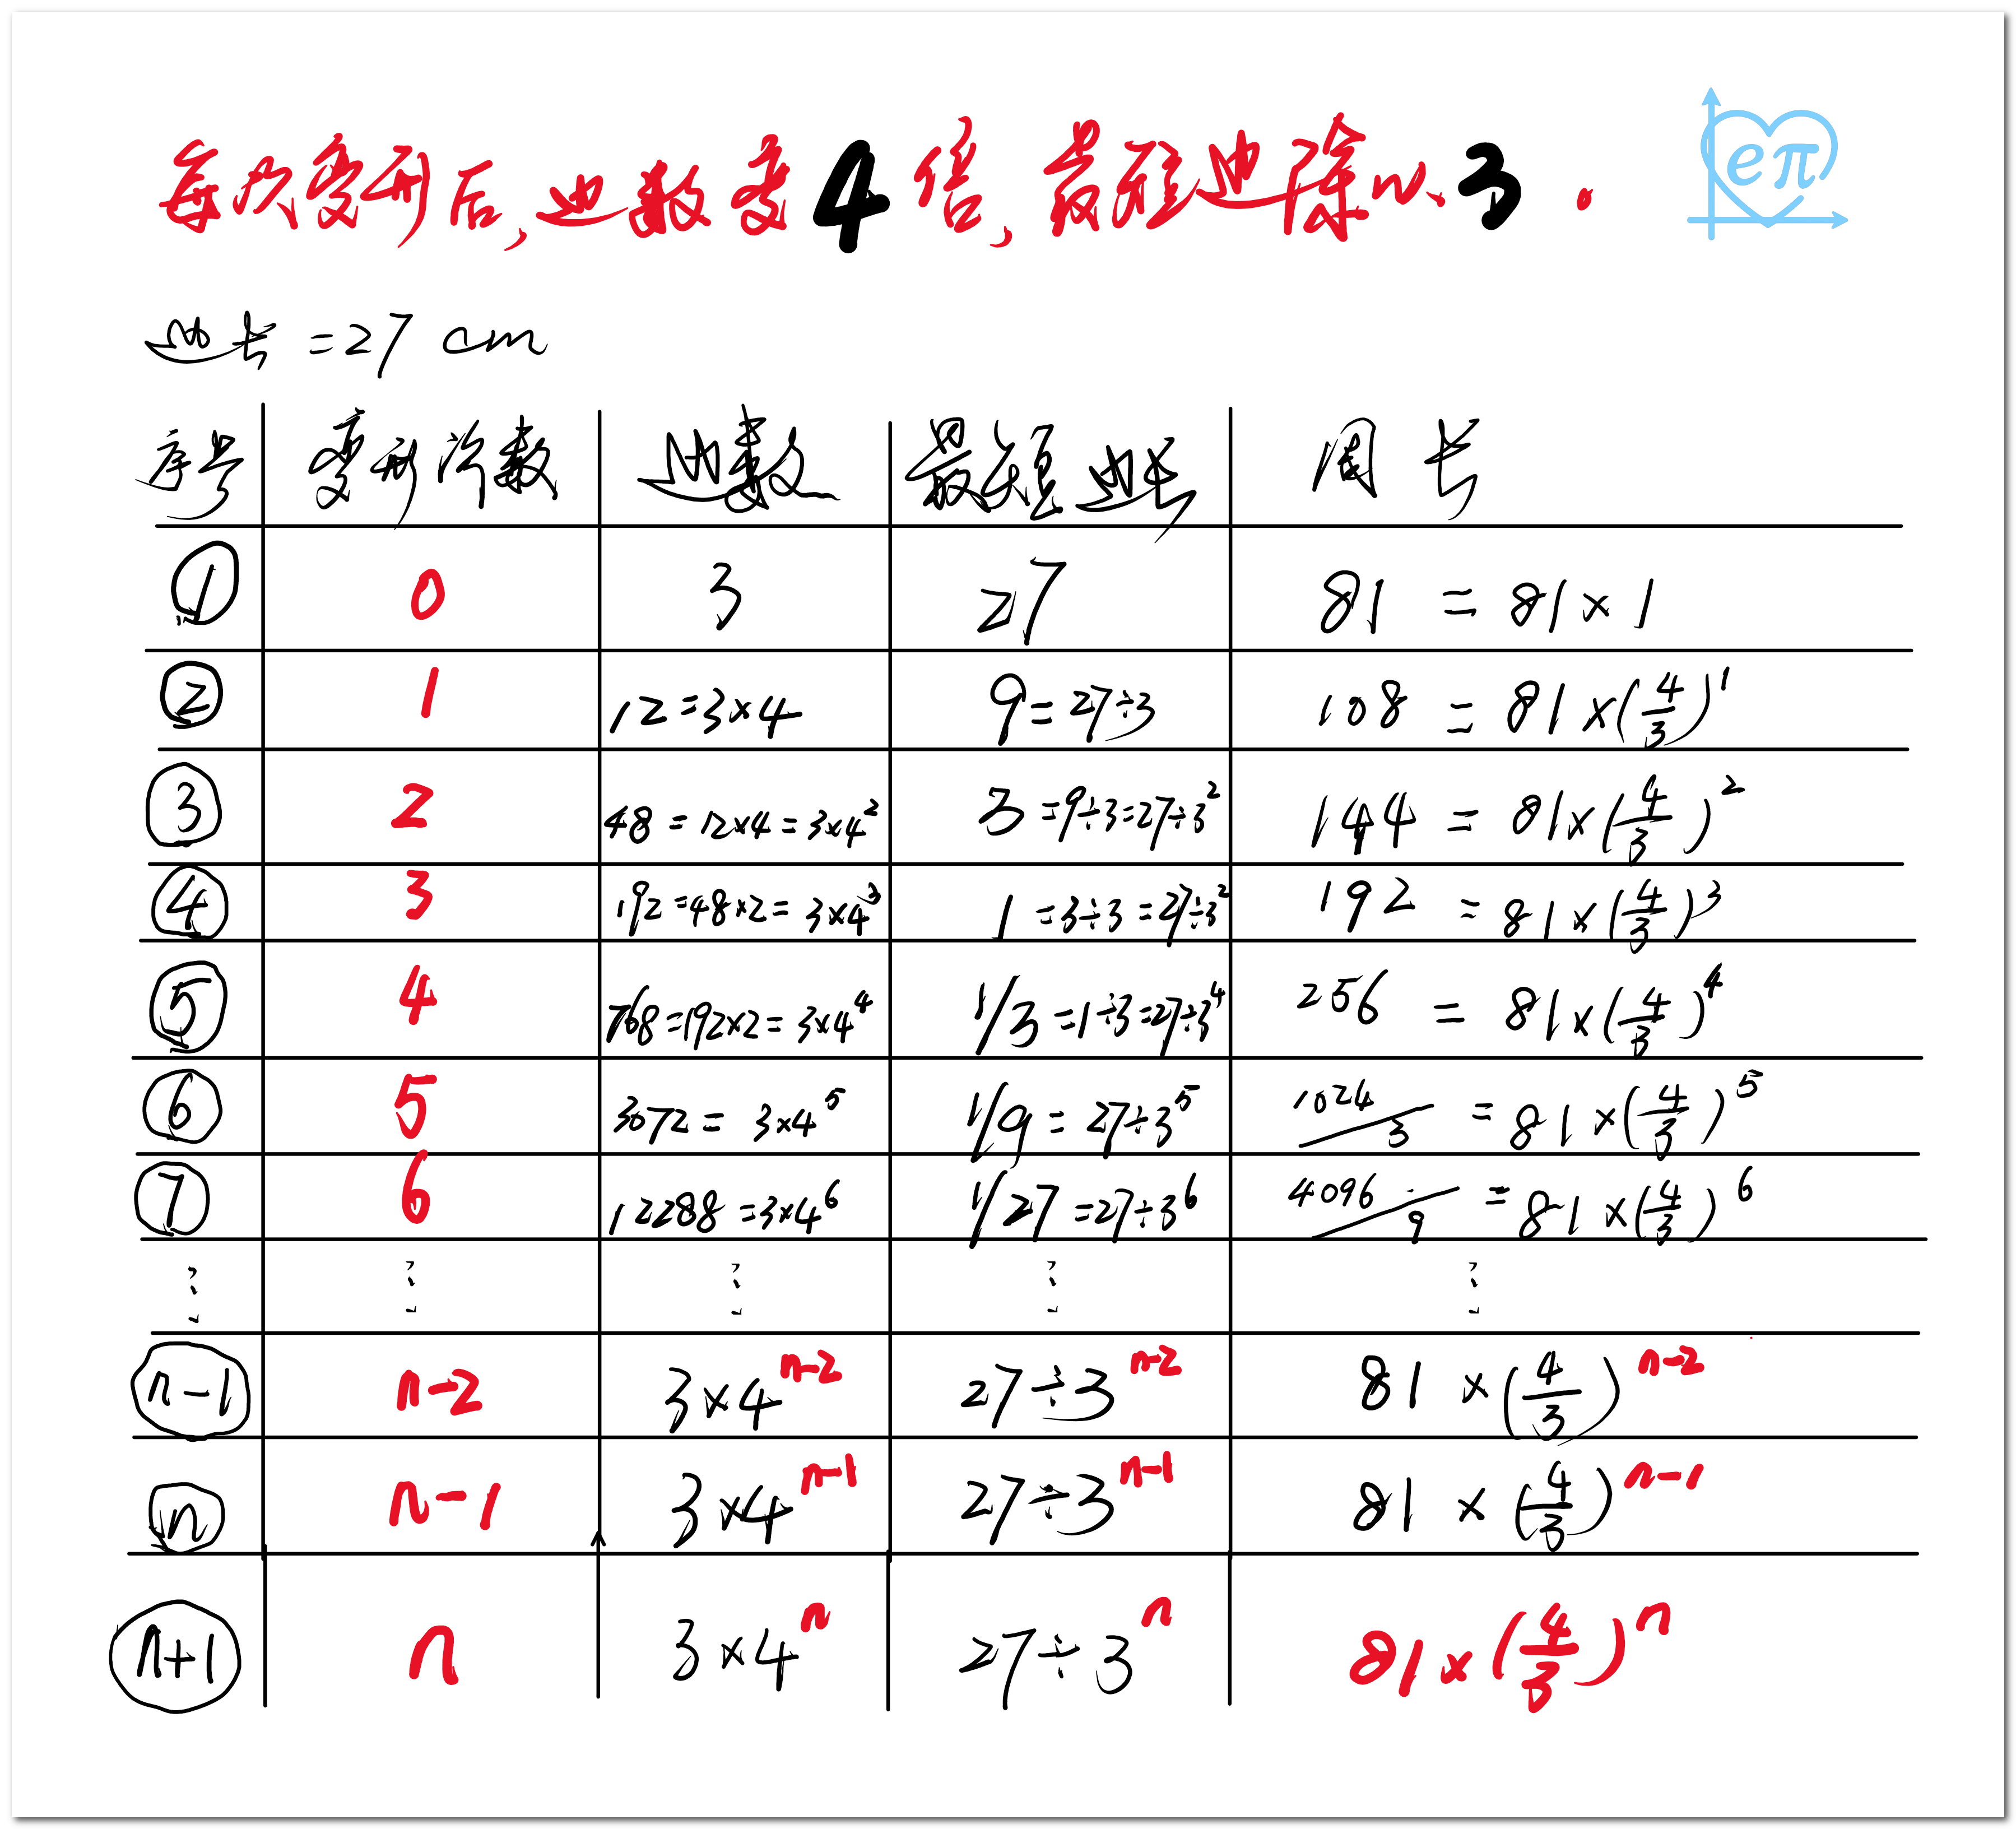 每次变形后,边数变4倍,最短边除以3。
eπ
边长=27 cm
序号 变形次数 边数 最短边长 周长
① 0 3 27 81 = 81×1
② 1 12=3×4 9=27÷3 108 = 81×(4/3)^1
③ 2 48=12×4=3×4^2 3=9÷3=27÷3^2 144 = 81×(4/3)^2
④ 3 192=48×2=3×4^3 1=3÷3=27÷3^2 192 = 81×(4/3)^3
⑤ 4 768=192×2=3×4^4 1/3=1÷3=27÷3^4 256 = 81×(4/3)^4
⑥ 5 3072=3×4^5 1/9=27÷3^5 1024/3 = 81×(4/3)^5
⑦ 6 12288=3×4^6 1/27=27÷3^6 4096/9 = 81×(4/3)^6
⋮ ⋮ ⋮ ⋮ ⋮
n-1 n-2 3×4^n-2 27÷3^n-2 81×(4/3)^n-2
n n-1 3×4^n-1 27÷3^n-1 81×(4/3)^n-1
n+1 n 3×4^n 27÷3^n 81×(4/3)^n